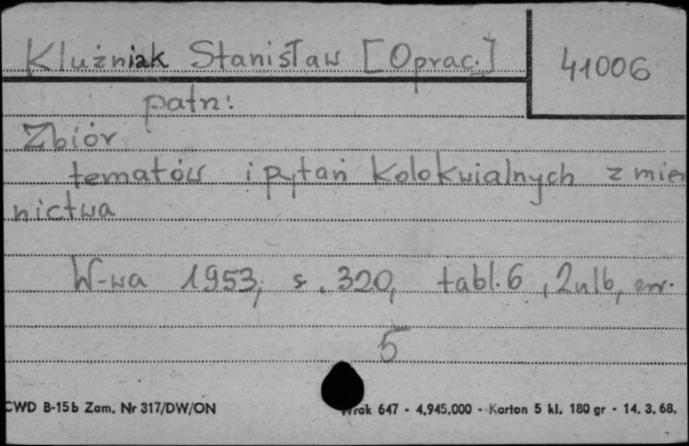 Kluźniak Stanisław [Oprac.]
41006
patrz:
Zbiór
tematów i pytań kolokwialnych z mier
nictwa
W-wa 1953, s. 320, tabl. 6, 2 nlb, err.
5
CWD B-15b Zam. Nr 317/DW/ON
Wrak 647 - 4.945.000 - Karton 5 kl. 180 gr - 14. 3. 68.